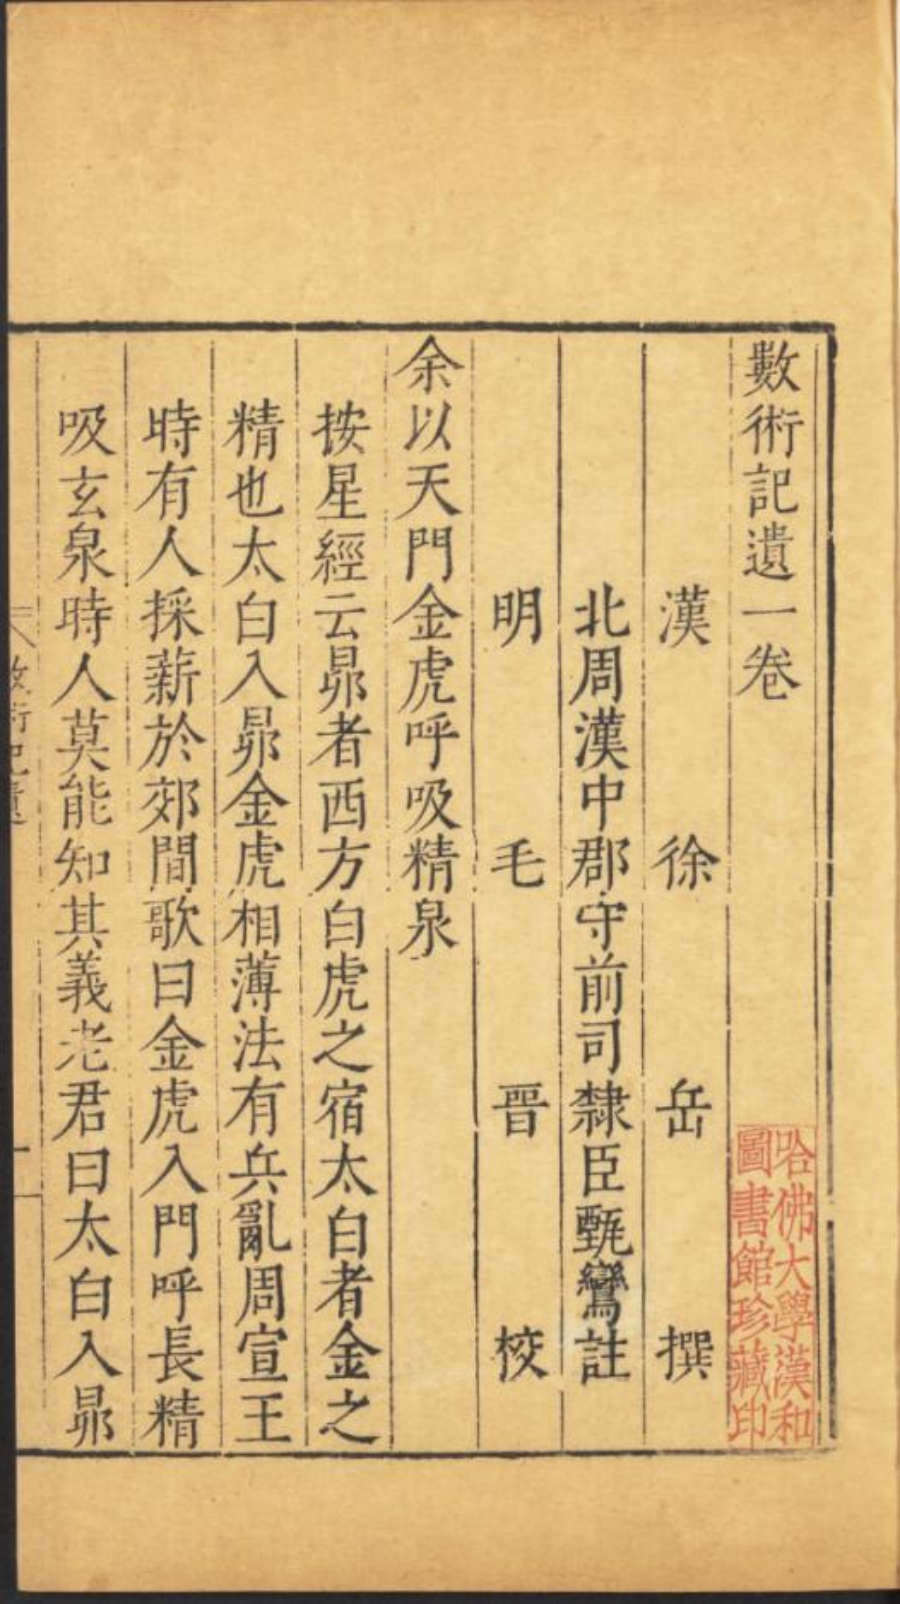 數術記遺一卷
漢徐岳撰
北周漢中郡守前司隸臣甄鸞註
明毛晉校
余以天門金虎呼吸精泉
按星經云昴者西方白虎之宿太白者金之
精也太白入昴金虎相薄法有兵亂周宣王
時有人採薪於郊間歌曰金虎入門呼長精
吸玄泉時人莫能知其義老君曰太白入昴
哈佛大學漢和
圖書館珍藏印